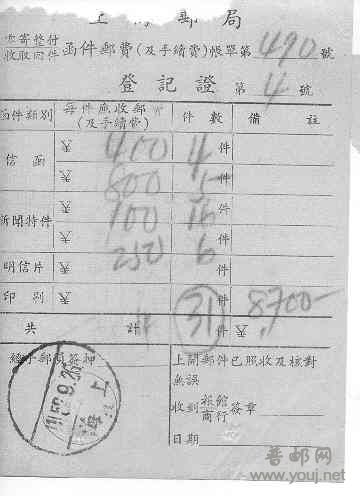 上海郵局
函件郵費(及手續費)帳單第 490 號
收取函件
登記證 第 4 號
函件類別 每件應收郵(及手續費) 件數 備註
信函 $ 400 4 件
$ 800 5 件
新聞特件 $ 100 16 件
$ 250 6 件
明信片 $ 件
印刷 $ 31 件 8700-
共計 件 $
上開郵件已照收及核對
無誤
收到 旅館商行 簽章
日期
上海
普邮网
www.youj.net